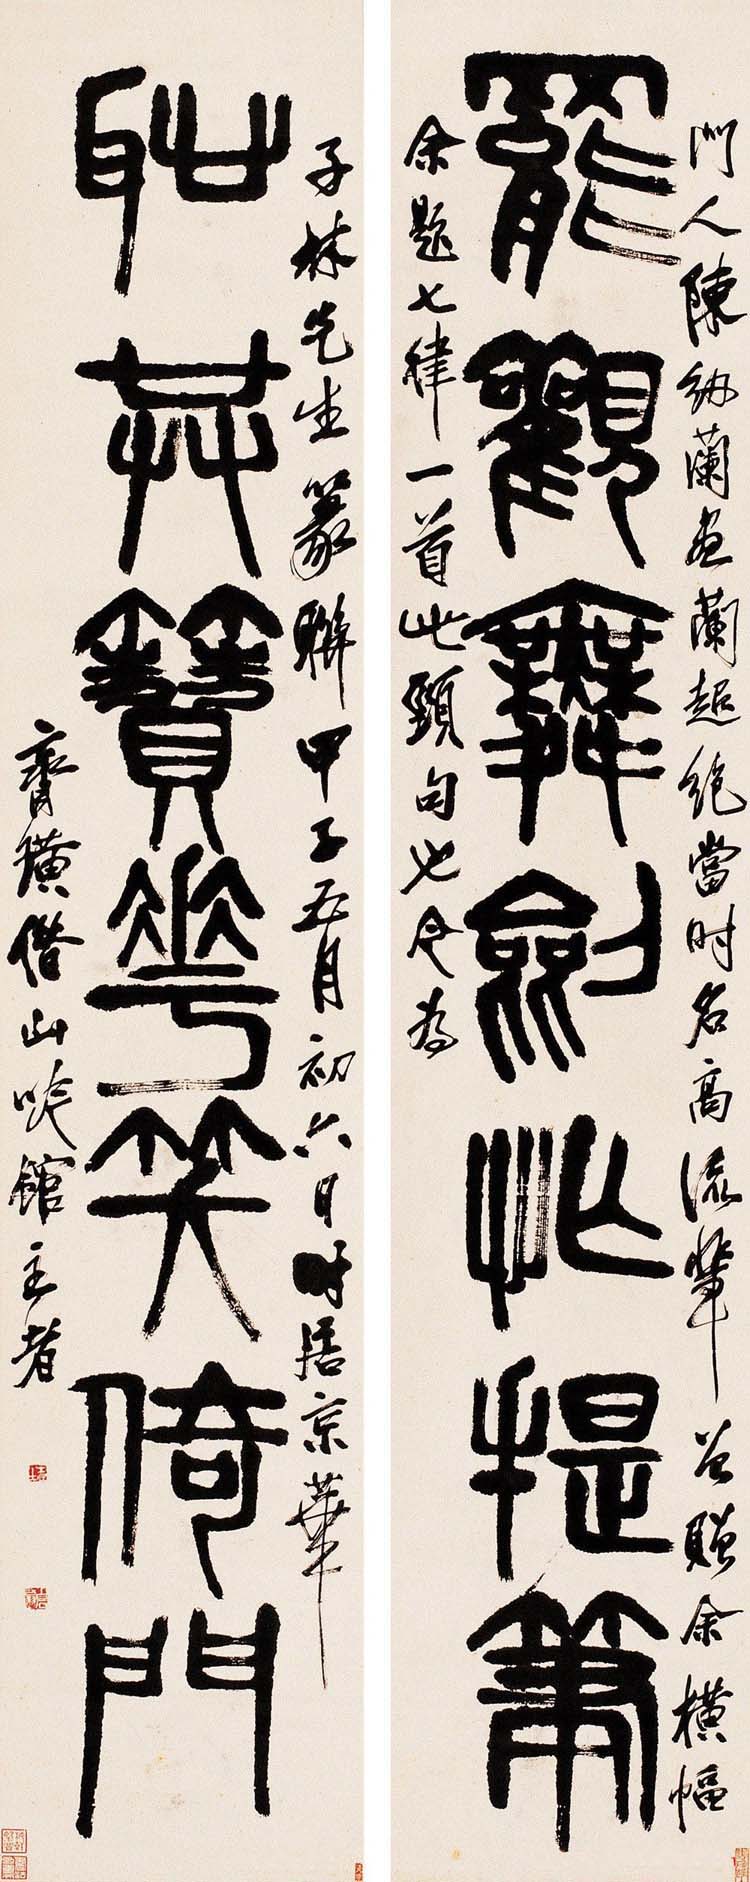 門人陳紉蘭畫蘭超絕當时名高流輩曾贈余橫幅
罷觀舞劍忙提筆
余題七律一首此頸句也今為
子林先生篆聯甲子五月初六日时居京華
恥共簪花笑倚門
齊璜借山唫館主者